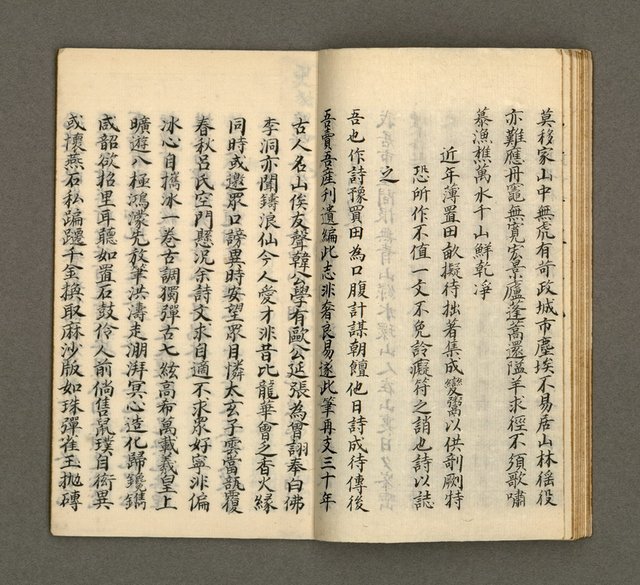 莫移家山中無虎有奇政城市塵埃不易居山林徭役
亦難應丹竈無寬宏景廬蓬蒿還隘羊求徑不須歌嘯
慕漁樵萬水千山鮮乾淨
近年薄置田畝擬待拙著集成變鬻以供剞劂特
恐所作不值一文不免詅癡符之誚也詩以誌
之
吾也作詩豫買田為口腹計謀朝饘他日詩成待傳後
吾賣吾產刊遺編此志非奢良易遂此筆再支三十年
古人名山俟友聲韓公學有歐公延張為曾詡奉白佛
李洞亦聞鑄浪仙今人愛才非昔比龍華會之香火緣
同時或邀眾口謗異時安望眾目憐太玄子雲當瓿覆
春秋呂氏空門懸況余詩文求自適不求眾好寧非偏
冰心自攜冰一卷古調獨彈古七絃高布萬載羲皇上
曠遊八極鴻濛先放筆洪濤走溯湃冥心造化歸鑱鐫
咸韶欲招里耳聽如置石鼓伶人前倘售鼠璞自衒異
或懷燕石私蹁躚千金換取麻沙版如珠彈雀玉拋磚